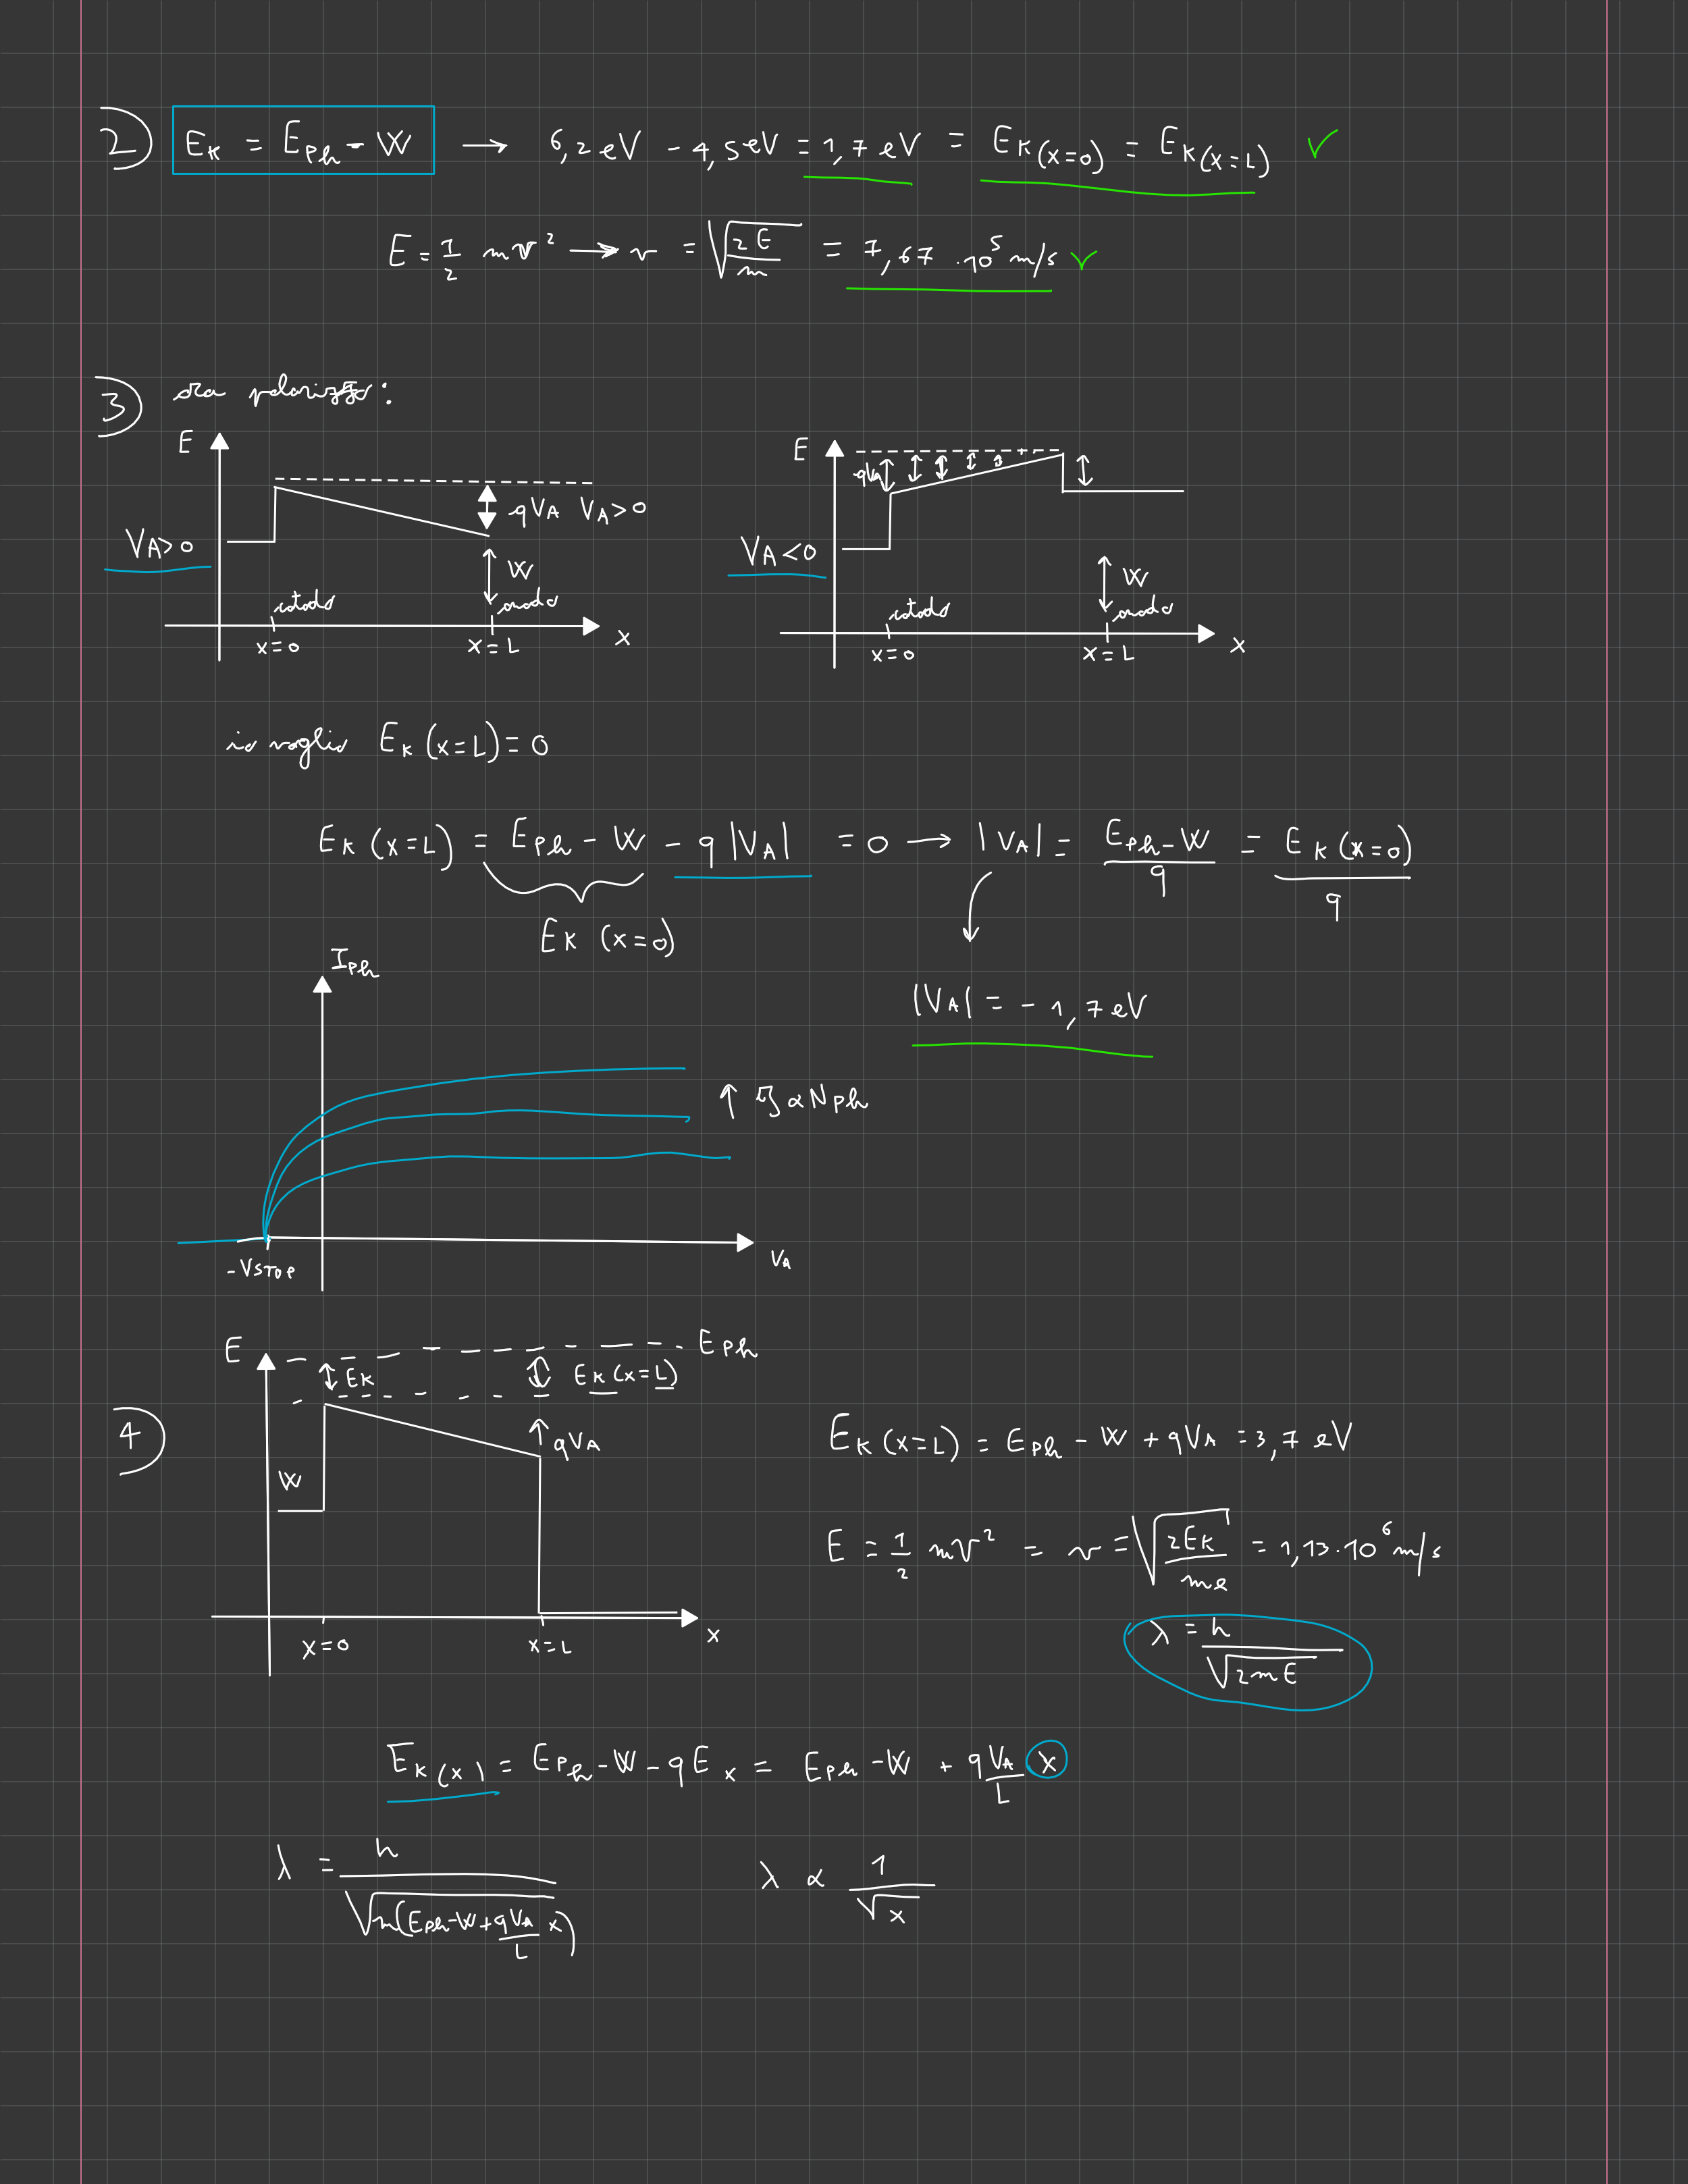 2) E_K = E_Ph - W → 6,2 eV - 4,5 eV = 1,7 eV = E_K(x=0) = E_K(x=L) ✓
E = 1/2 mv² → v = √(2E/m) = 7,67 · 10⁵ m/s ✓
3) ora polarizzo:
E
V_A > 0
qV_A V_A > 0
W
catodo
anodo
x=0
x=L
x
E
qV_A
V_A < 0
W
catodo
anodo
x=0
x=L
x
io voglio E_K (x=L) = 0
E_K (x=L) = E_Ph - W - q |V_A| = 0 → |V_A| = (E_Ph - W)/q = E_K (x=0)/q
E_K (x=0)
|V_A| = - 1,7 eV
I_Ph
↑ ∝ N_Ph
-V_STOP
V_A
4)
E
E_Ph
E_K
E_K (x=L)
qV_A
W
x=0
x=L
x
E_K (x=L) = E_Ph - W + qV_A = 3,7 eV
E = 1/2 mv² = v = √(2E_K/me) = 1,13 · 10⁶ m/s
λ = h/√(2mE)
E_K(x) = E_Ph - W - qE x = E_Ph - W + q V_A/L x
λ = h/√(m(E_Ph - W + qV_A/L x))
λ ∝ 1/√x